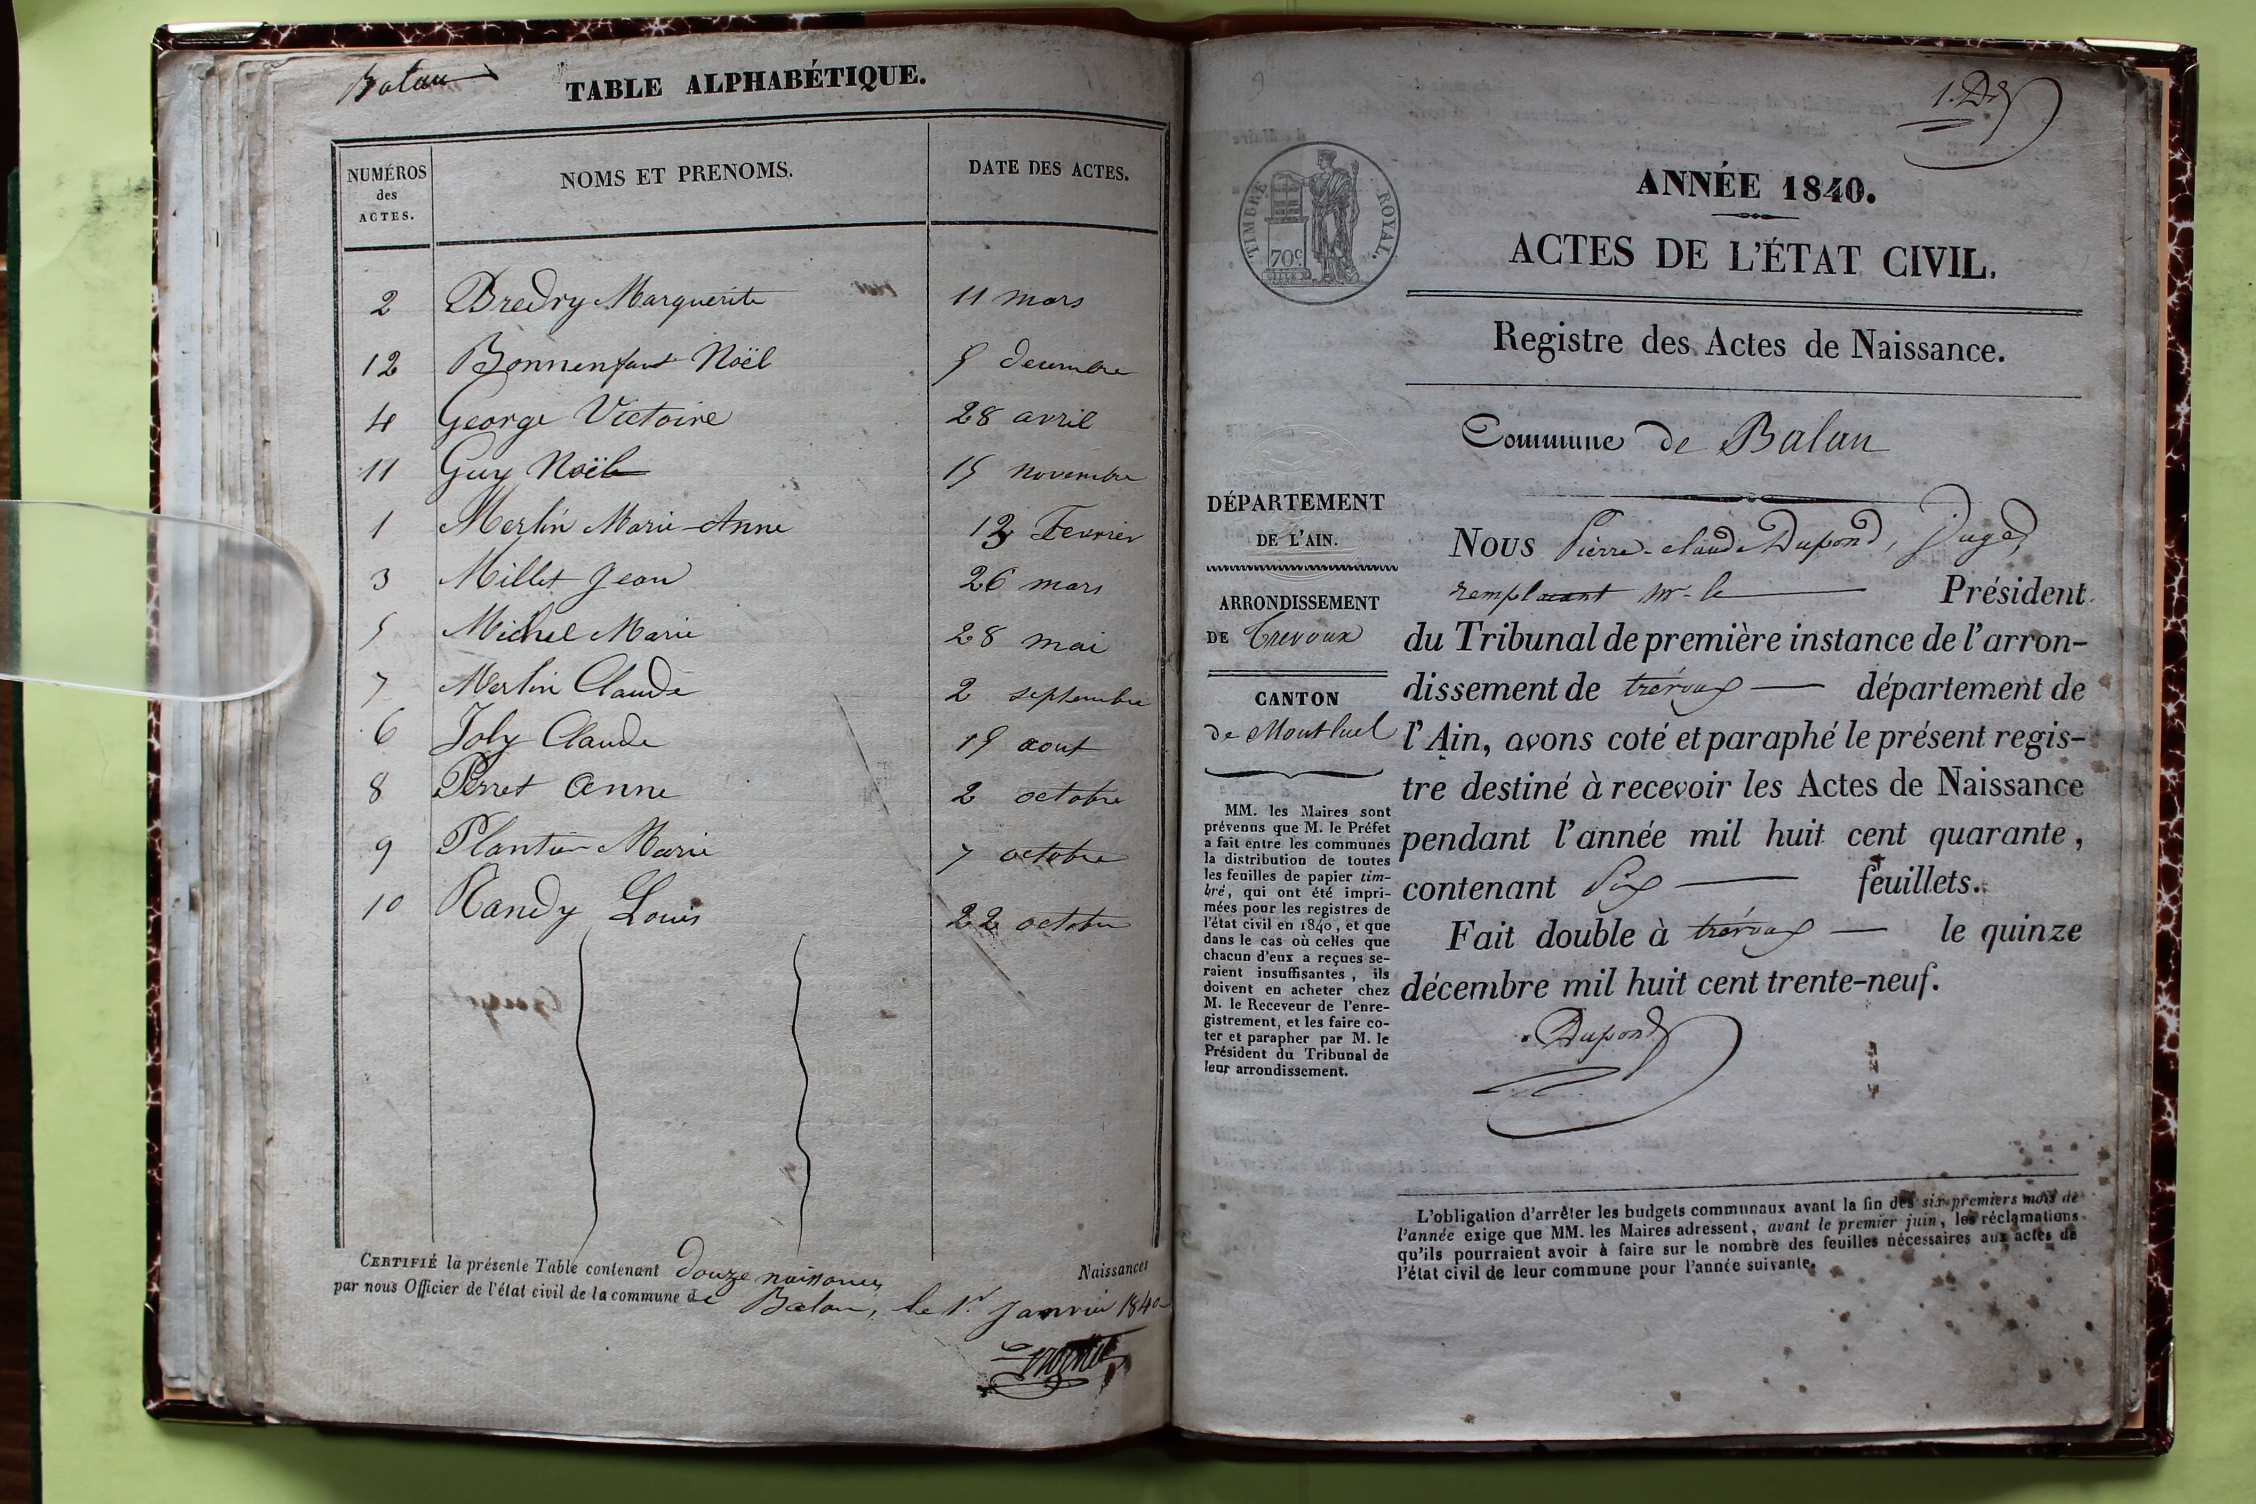 Balan
TABLE ALPHABÉTIQUE.
NUMÉROS des ACTES. NOMS ET PRENOMS. DATE DES ACTES.
2 Bredry Marguerite 11 mars
12 Bonnenfant Noël 5 decembre
4 George Victoire 28 avril
11 Guy Noël 15 novembre
1 Merlin Marie-Anne 12 Fevrier
3 Millet Jean 26 mars
5 Michel Marie 28 mai
7 Merlin Claude 2 septembre
6 Joly Claude 15 aout
8 Perret Anne 2 octobre
9 Plantier Marie 7 octobre
10 Randy Louis 22 octobre
CERTIFIÉ la présente Table contenant douze naissances Naissances
par nous Officier de l'état civil de la commune de Balan, le 1.r Janvier 1840
1. D.d
TIMBRE ROYAL.
70c.
ANNÉE 1840.
ACTES DE L'ÉTAT CIVIL.
Registre des Actes de Naissance.
Commune de Balan
DÉPARTEMENT
DE L'AIN.
ARRONDISSEMENT
DE Trevoux
CANTON
de Montluel
MM. les Maires sont
prévenus que M. le Préfet
a fait entre les communes
la distribution de toutes
les feuilles de papier tim-
bré, qui ont été impri-
mées pour les registres de
l'état civil en 1840, et que
dans le cas où celles que
chacun d'eux a reçues se-
raient insuffisantes, ils
doivent en acheter chez
M. le Receveur de l'enre-
gistrement, et les faire co-
ter et parapher par M. le
Président du Tribunal de
leur arrondissement.
Nous Pierre-claude Dupond, Juge,
remplacant Mr. le Président
du Tribunal de première instance de l'arron-
dissement de trévoux département de
l'Ain, avons coté et paraphé le présent regis-
tre destiné à recevoir les Actes de Naissance
pendant l'année mil huit cent quarante,
contenant Six feuillets.
Fait double à trévoux le quinze
décembre mil huit cent trente-neuf.
Dupond
L'obligation d'arrêter les budgets communaux avant la fin des six premiers mois de
l'année exige que MM. les Maires adressent, avant le premier juin, les réclamations
qu'ils pourraient avoir à faire sur le nombre des feuilles nécessaires aux actes de
l'état civil de leur commune pour l'année suivante.